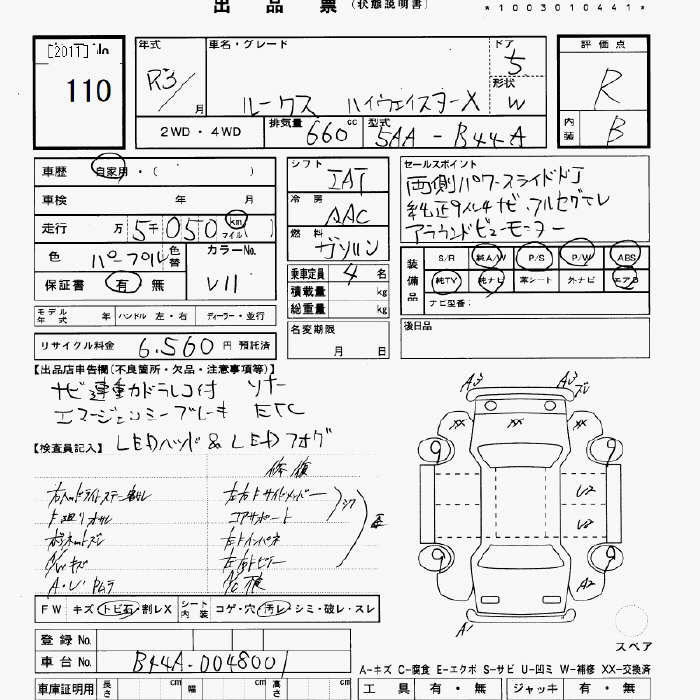 出品票（状態説明書）
*1003010441*
110
年式 R3/ 月
車名・グレード ルークス ハイウェイスターX
ドア 5
形状 W
評価点 R
内装 B
2WD・4WD
排気量 660 cc
型式 5AA-B44A
車歴 自家用・（ ）
車検 年 月
走行 万 5千050 km マイル
色 パープル 色替
カラーNo. V11
保証書 有・無
シフト IAT
冷房 AAC
燃料 ガソリン
乗車定員 4 名
積載量 kg
総重量 kg
セールスポイント
両側パワースライドドア
純正9インチナビ、フルセグTV
アラウンドビューモニター
装備品 S/R 純A/W P/S P/W ABS
純TV 純ナビ 革シート 外ナビ エアB
ナビ型番：
モデル年式 年 ハンドル 左・右 ディーラー・並行
名変期限 月 日
後日品
リサイクル料金 6,560 円 預託済
【出品店申告欄（不良箇所・欠品・注意事項等）】
ナビ連動カドラレコ付 ソナー
エマージェンシーブレーキ ETC
LEDヘッド&LEDフォグ
【検査員記入】
修復
左右Fサイドメンバー
コアサポート
左Fインパネ
A/Wキズ
A3 A3 ズレ
XX XX XX
9 9
U2
U2
9 9
A2
A1
FW キズ・トビ石・割レX シート内装 コゲ・穴・汚レ・シミ・破レ・スレ
スペア
登録No.
車台No. B44A-0048001
A-キズ C-腐食 E-エクボ S-サビ U-凹ミ W-補修 XX-交換済
車庫証明用 長さ cm 幅 cm 高さ cm
工具 有・無 ジャッキ 有・無